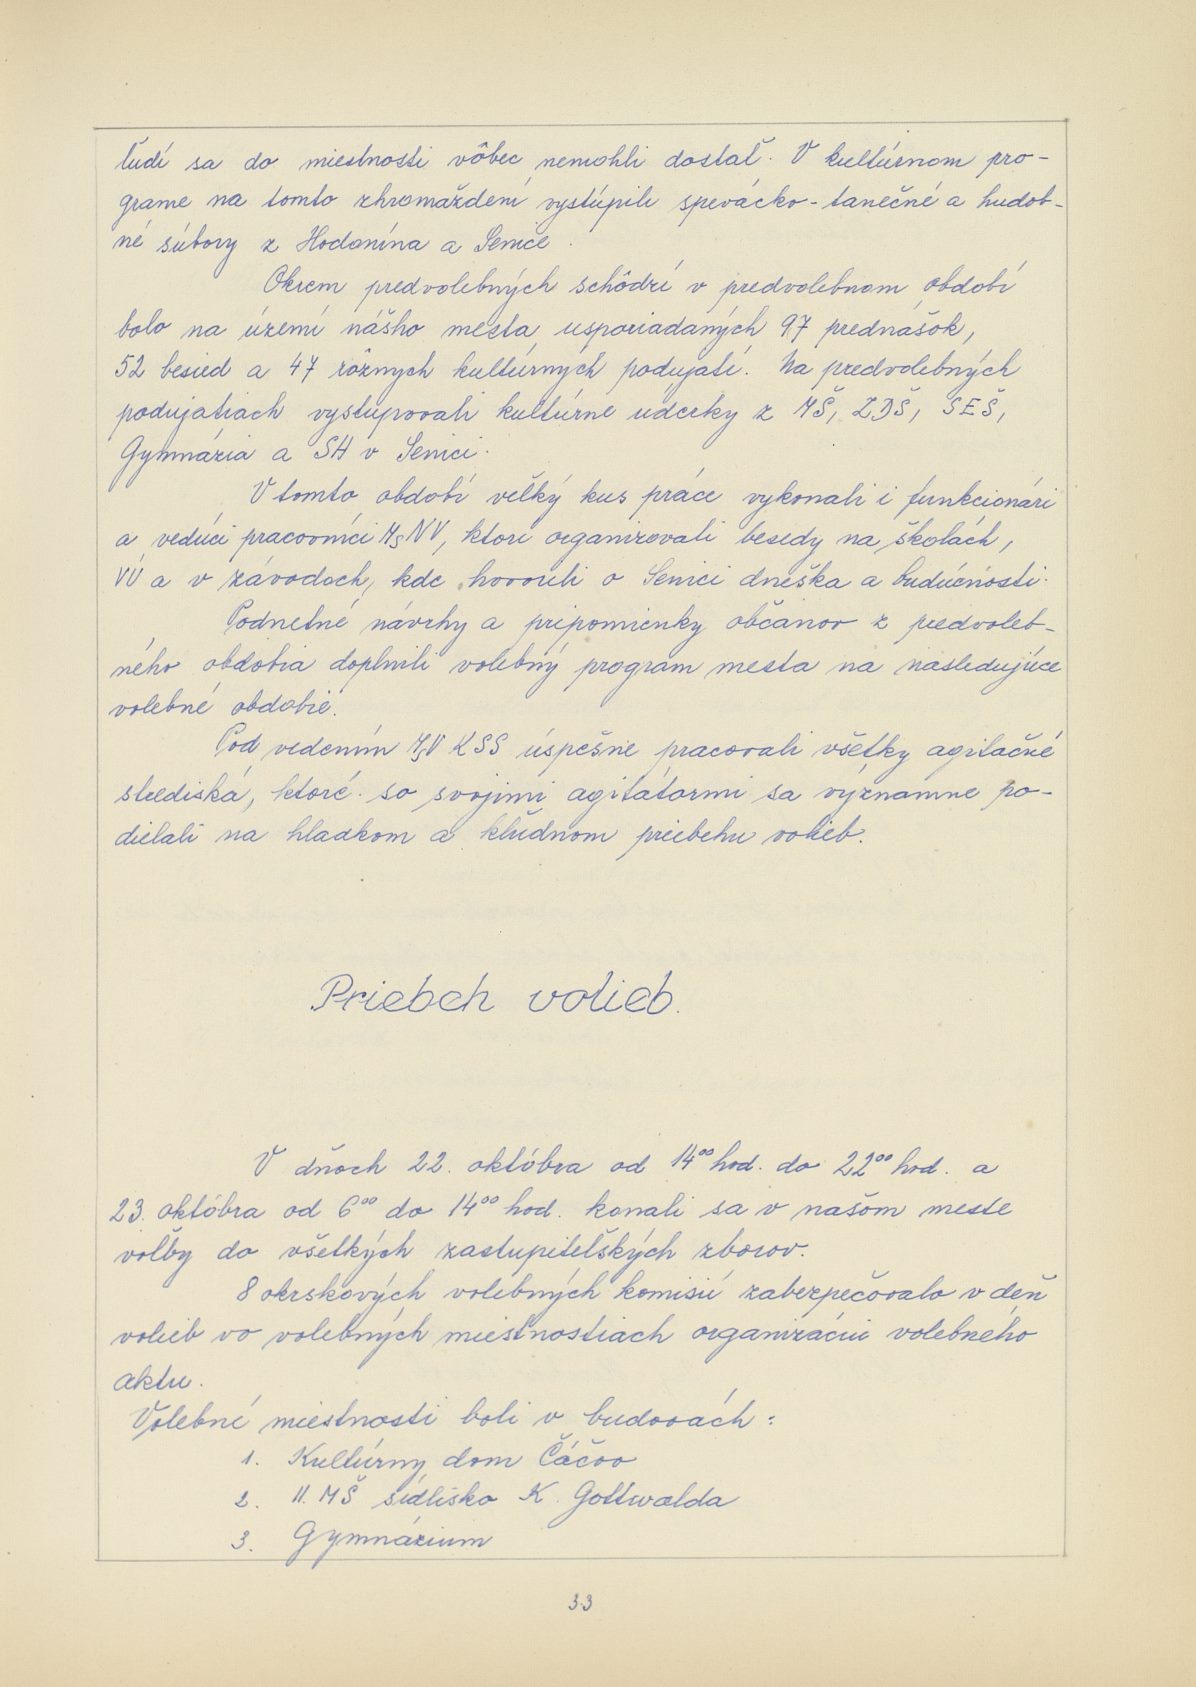 ľudí sa do miestnosti vôbec nemohli dostať. V kultúrnom pro-
grame na tomto zhromaždení vystúpili spevácko-tanečné a hudob-
né súbory z Hodonína a Senice.
Okrem predvolebných schôdzí v predvolebnom období
bolo na území nášho mesta usporiadaných 97 prednášok,
52 besied a 47 rôznych kultúrných podujatí. Na predvolebných
podujatiach vystupovali kultúrne uderky z MŠ, ZDŠ, SEŠ,
Gymnázia a SH v Senici.
V tomto období veľký kus práce vykonali i funkcionári
a vedúci pracovníci MsNV, ktorí organizovali besedy na školách,
VÚ a v závodoch, kde hovorili o Senici dneška a budúcnosti.
Podnetné návrhy a pripomienky občanov z predvoleb-
ného obdobia doplnili volebný program mesta na nasledujúce
volebné obdobie.
Pod vedením MsV KSS úspešne pracovali všetky agitačné
strediská, ktoré so svojimi agitátormi sa významne po-
dielali na hladkom a kľudnom priebehu volieb.
Priebeh volieb.
V dňoch 22. októbra od 14⁰⁰ hod. do 22⁰⁰ hod. a
23. októbra od 6⁰⁰ do 14⁰⁰ hod. konali sa v našom meste
voľby do všetkých zastupiteľských zborov.
8 okrskových volebných komisií zabezpečovalo v deň
volieb vo volebných miestnostiach organizáciu volebného
aktu.
Volebné miestnosti boli v budovách:
1. Kultúrny dom Čáčov
2. II. MŠ sídlisko K. Gottwalda
3. Gymnázium
33